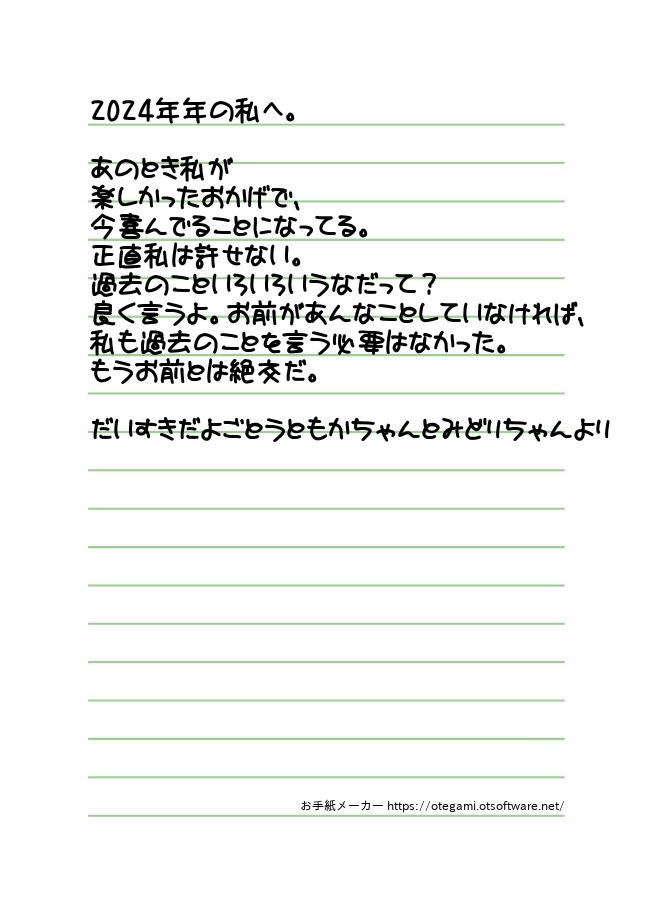 2024年年の私へ。
あのとき私が
楽しかったおかげで、
今喜んでることになってる。
正直私は許せない。
過去のこといろいろいうなだって？
良く言うよ。お前があんなことしていなければ、
私も過去のことを言う必要はなかった。
もうお前とは絶交だ。
だいすきだよごとうともかちゃんとみどりちゃんより
お手紙メーカー https://otegami.otsoftware.net/